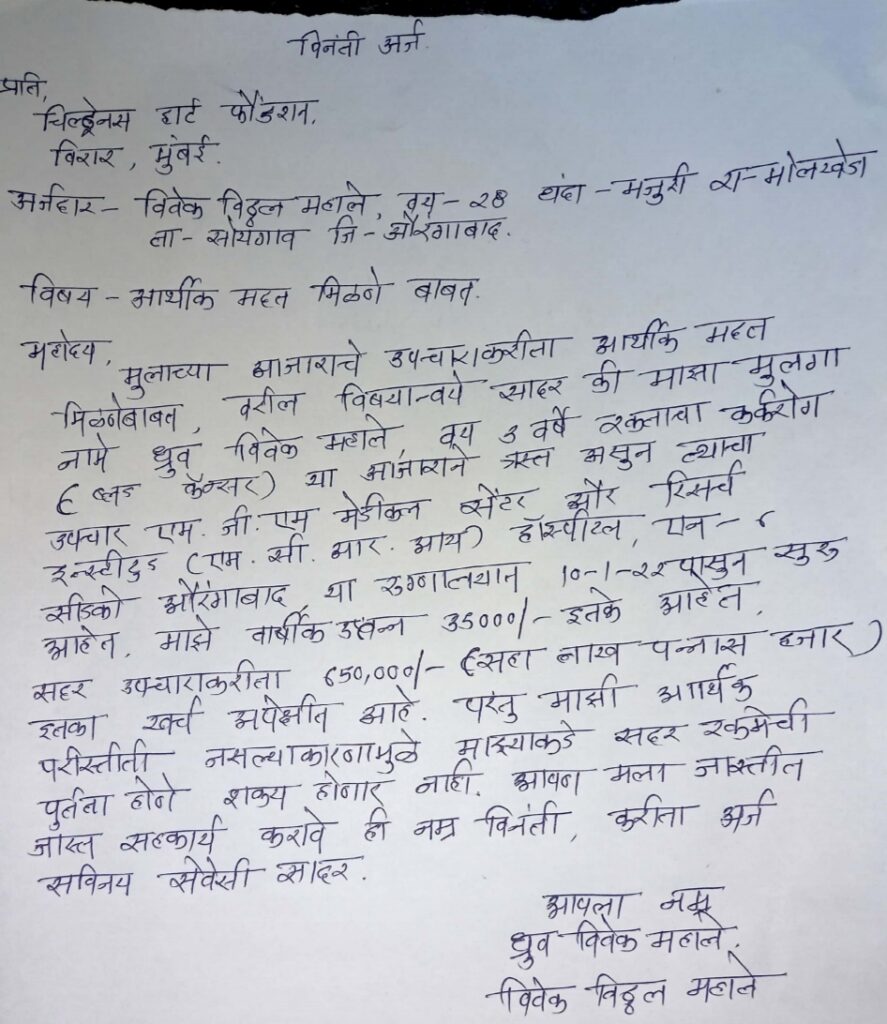 विनंती अर्ज.
प्रति,
चिल्ड्रेनस हार्ट फौंडेशन,
विरार, मुंबई.
अर्जदार - विवेक विठ्ठल महाले, वय - २८ धंदा - मजुरी रा - मोलखेडा
ता - सोयगाव जि - औरंगाबाद.
विषय - आर्थीक मदत मिळणे बाबत.
महोदय,
मुलाच्या आजाराचे उपचाराकरीता आर्थीक मदत
मिळणेबाबत, वरील विषयान्वये सादर की माझा मुलगा
नामे ध्रुव विवेक महाले, वय ३ वर्षे रक्ताचा कर्करोग
(ब्लड कॅन्सर) या आजाराने त्रस्त असुन त्याचा
उपचार एम. जी. एम मेडीकल सेंटर और रिसर्च
इन्स्टीटुड (एम. सी. आर. आय) हॉस्पीटल, एन - ६
सीडको औरंगाबाद या रुग्णालयात १०-१-२२ पासुन सुरु
आहेत. माझे वार्षीक उत्पन्न ३५०००/- इतके आहेत.
सदर उपचाराकरीता ६५०,०००/- (सहा लाख पन्नास हजार)
इतका खर्च अपेक्षीत आहे. परंतु माझी आर्थिक
परीस्तीती नसल्याकारणामुळे माझ्याकडे सदर रकमेची
पुर्तता होणे शक्य होणार नाही. आपण मला जास्तीत
जास्त सहकार्य करावे ही नम्र विनंती, करीता अर्ज
सविनय सेवेसी सादर.
आपला नम्र
ध्रुव विवेक महाले.
विवेक विठ्ठल महाले